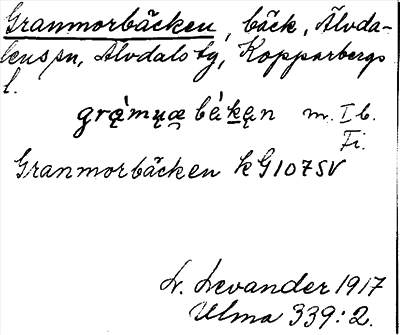 Granmorbäcken, bäck, Älvda-
lens sn, Älvdals tg, Kopparbergs
l.
grą̀mųæ bɛ́kęn m. I b.
Fi.
Granmorbäcken kG107SV
L. Levander 1917
Ulma 339:2.